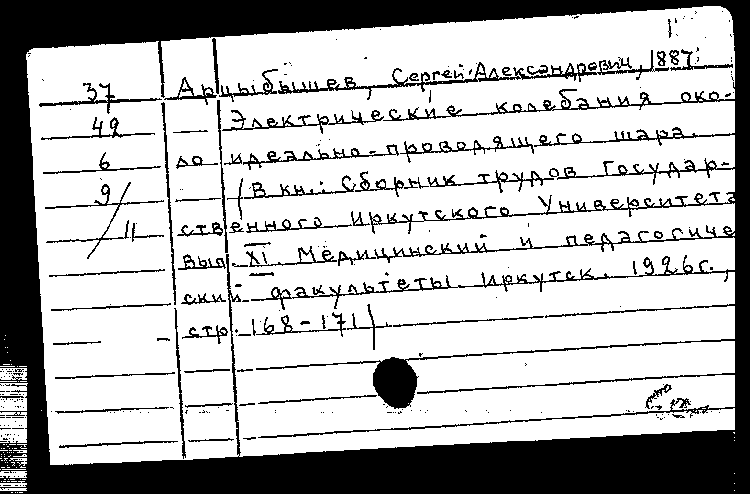 37 Арцыбышев, Сергей Александрович, 1887.
42 Электрические колебания око-
6 ло идеально-проводящего шара.
9/11 (В кн.: Сборник трудов Государ-
ственного Иркутского Университета
Вып. XI. Медицинский и педагогиче
ский факультеты. Иркутск. 1926г.,
стр. 168-171)